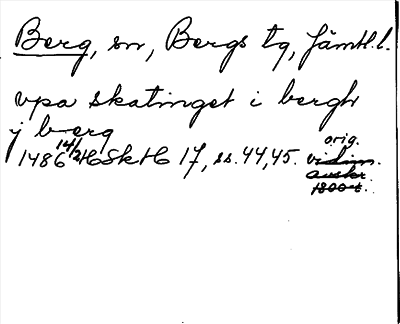 Berg, sn, Bergs tg, Jämtl.l.
vpa skatinget i bergh
j berg
1486 14/2 HSkH 17, ss. 44, 45. orig.
vidim.
avskr.
1800-t.